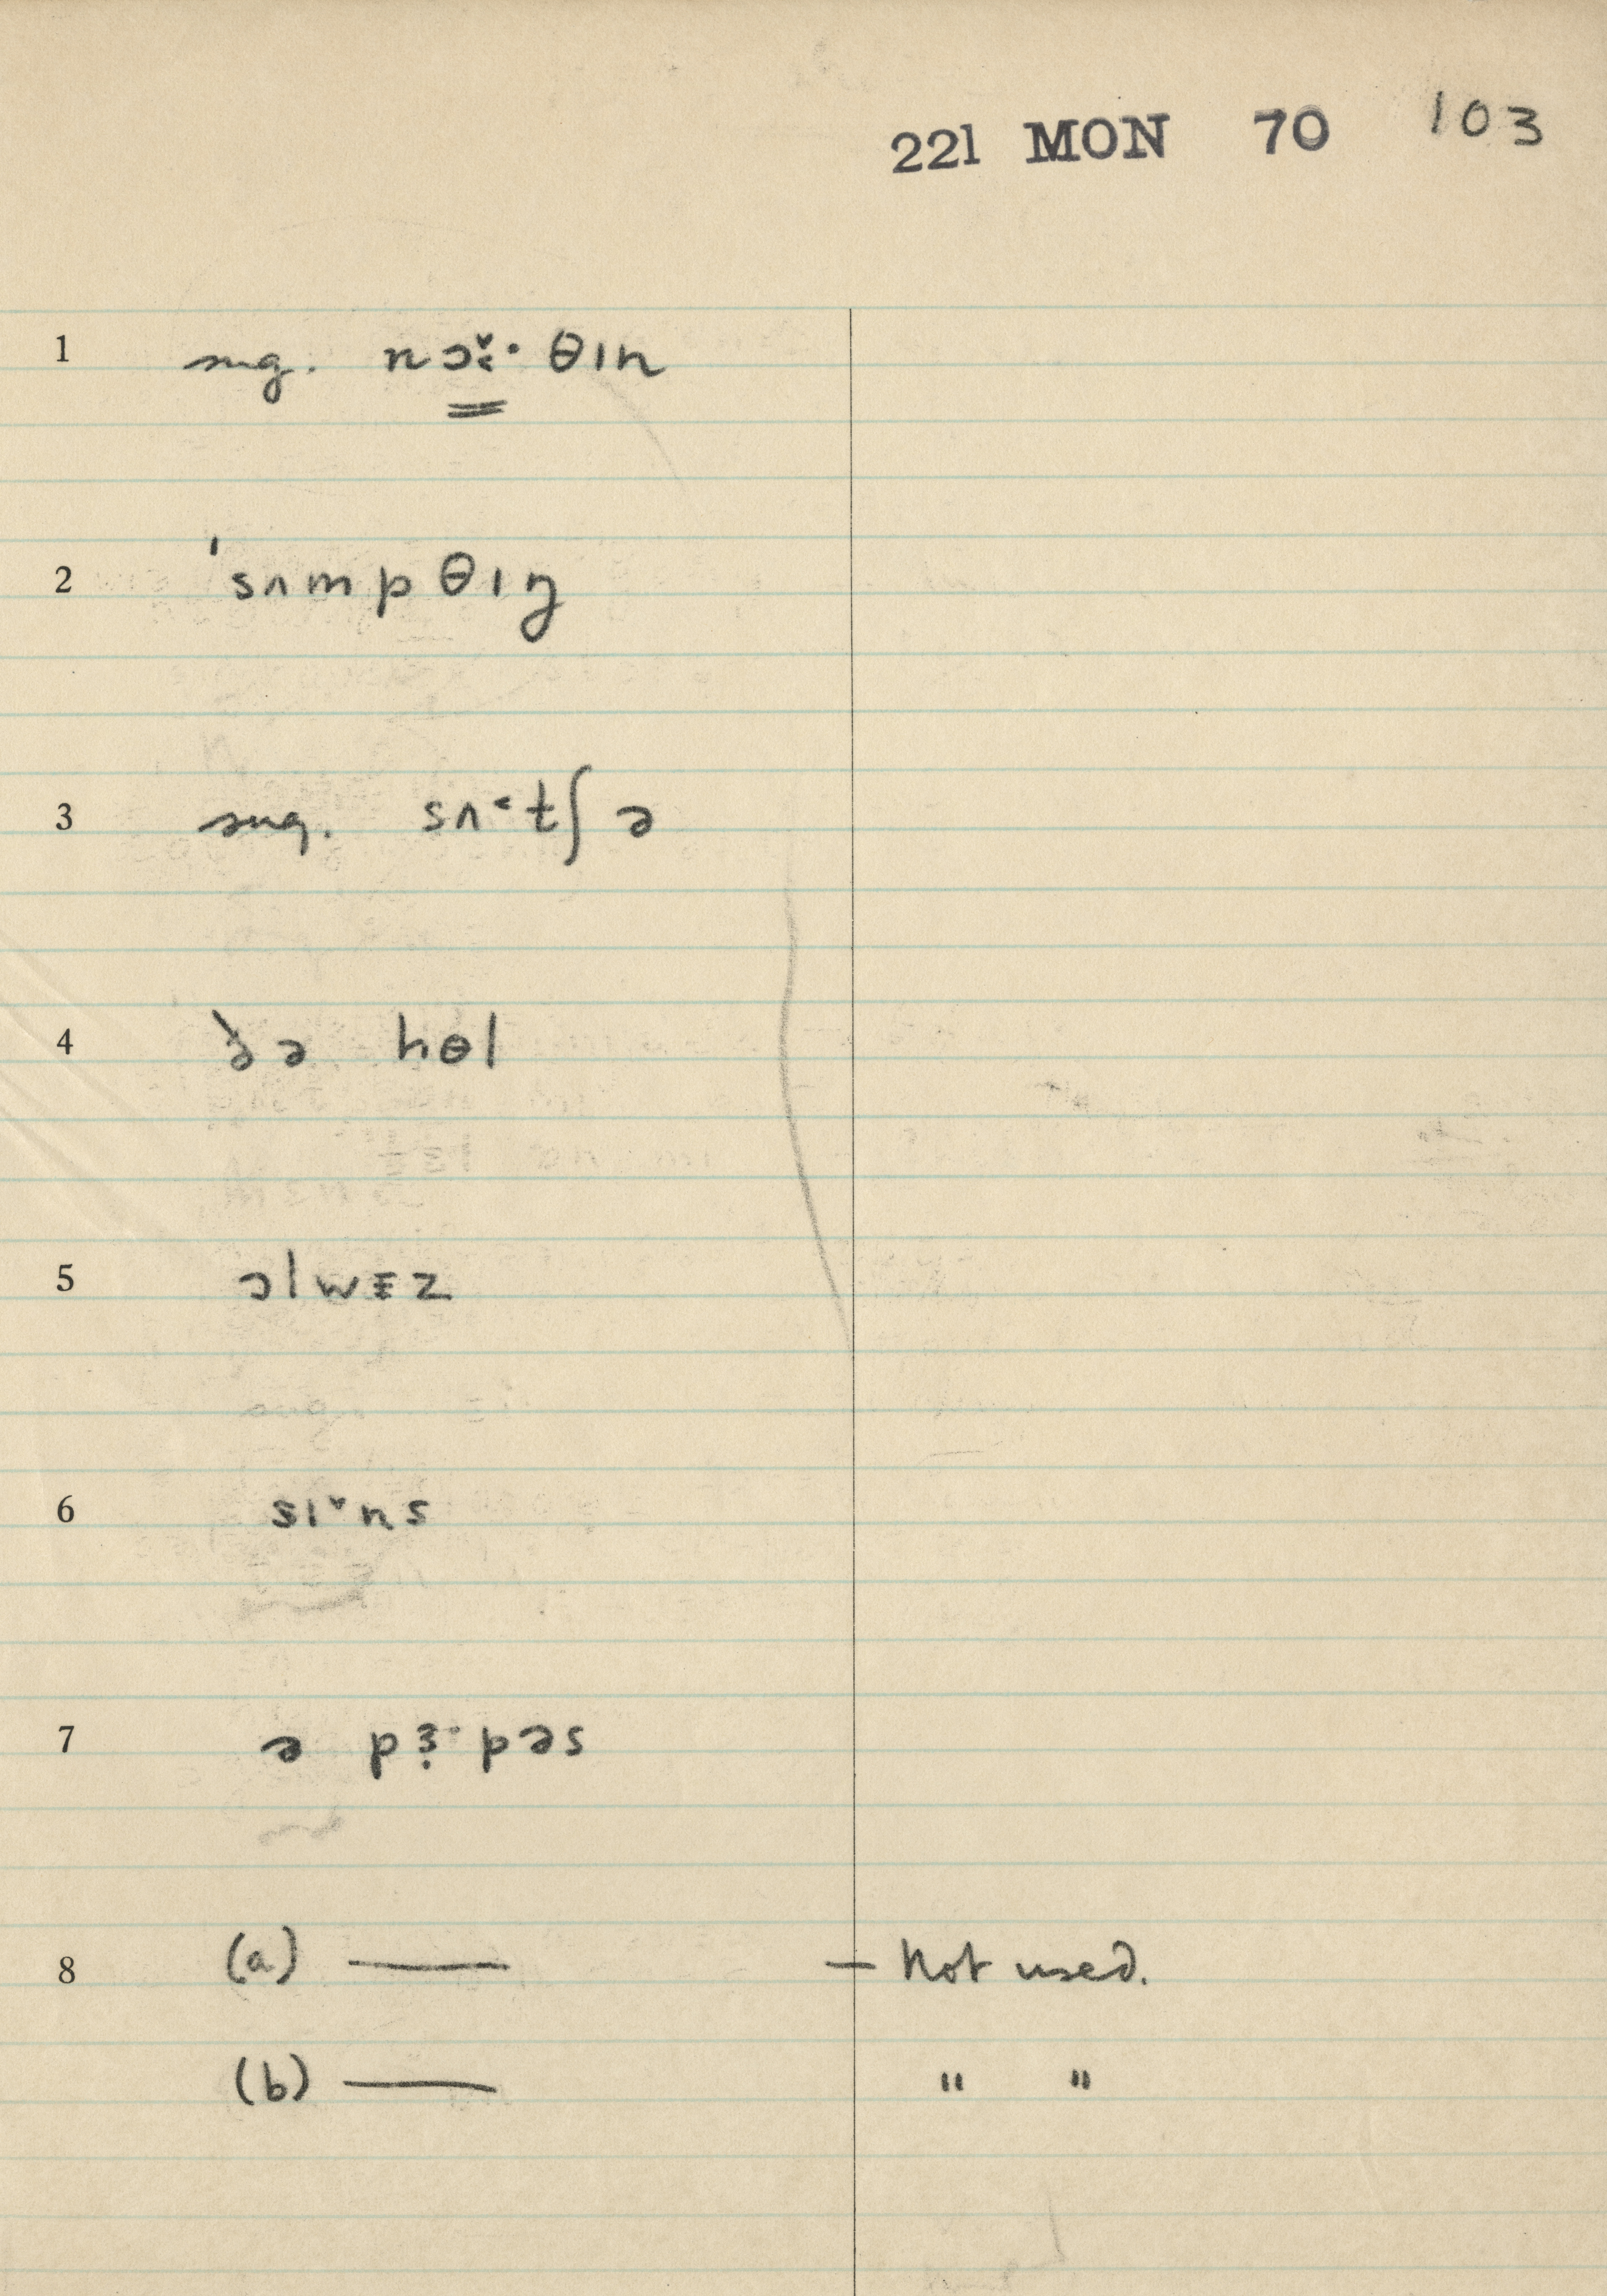 221 MON 70 103
1 sug. nɔ̌˞· θın
2 ˈsʌmpθıŋ
3 sug. sʌ˂tʃ ə
4 ðə hɵl
5 ɔlwɛz
6 sı˅ns
7 ə pɜ˞·pəs
8 (a) — — Not used.
(b) — " "